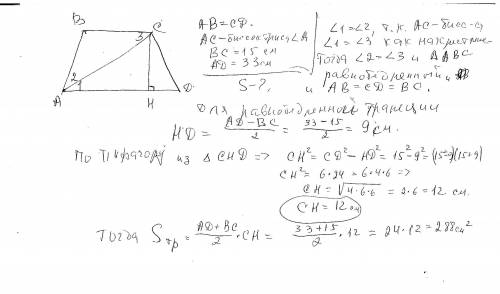 B C
3
1
2
A H D
AB = CD.
AC - биссектриса ∠A
BC = 15 см
AD = 33 см
S - ?
∠1 = ∠2, т.к. AC - бисс-са
∠1 = ∠3 как накрест
Тогда ∠2 = ∠3 и ΔABC
равнобедренный,
и AB = CD = BC.
Для равнобедренной трапеции
HD = (AD - BC)/2 = (33 - 15)/2 = 9 см.
По Пифагору из ΔCHD => CH² = CD² - HD² = 15² - 9² = (15-9)(15+9)
CH² = 6·24 = 6·4·6 =>
CH = √4·6·6 = 2·6 = 12 см.
CH = 12 см
Тогда Sтр = (AD + BC)/2 · CH = (33 + 15)/2 · 12 = 24·12 = 288 см²